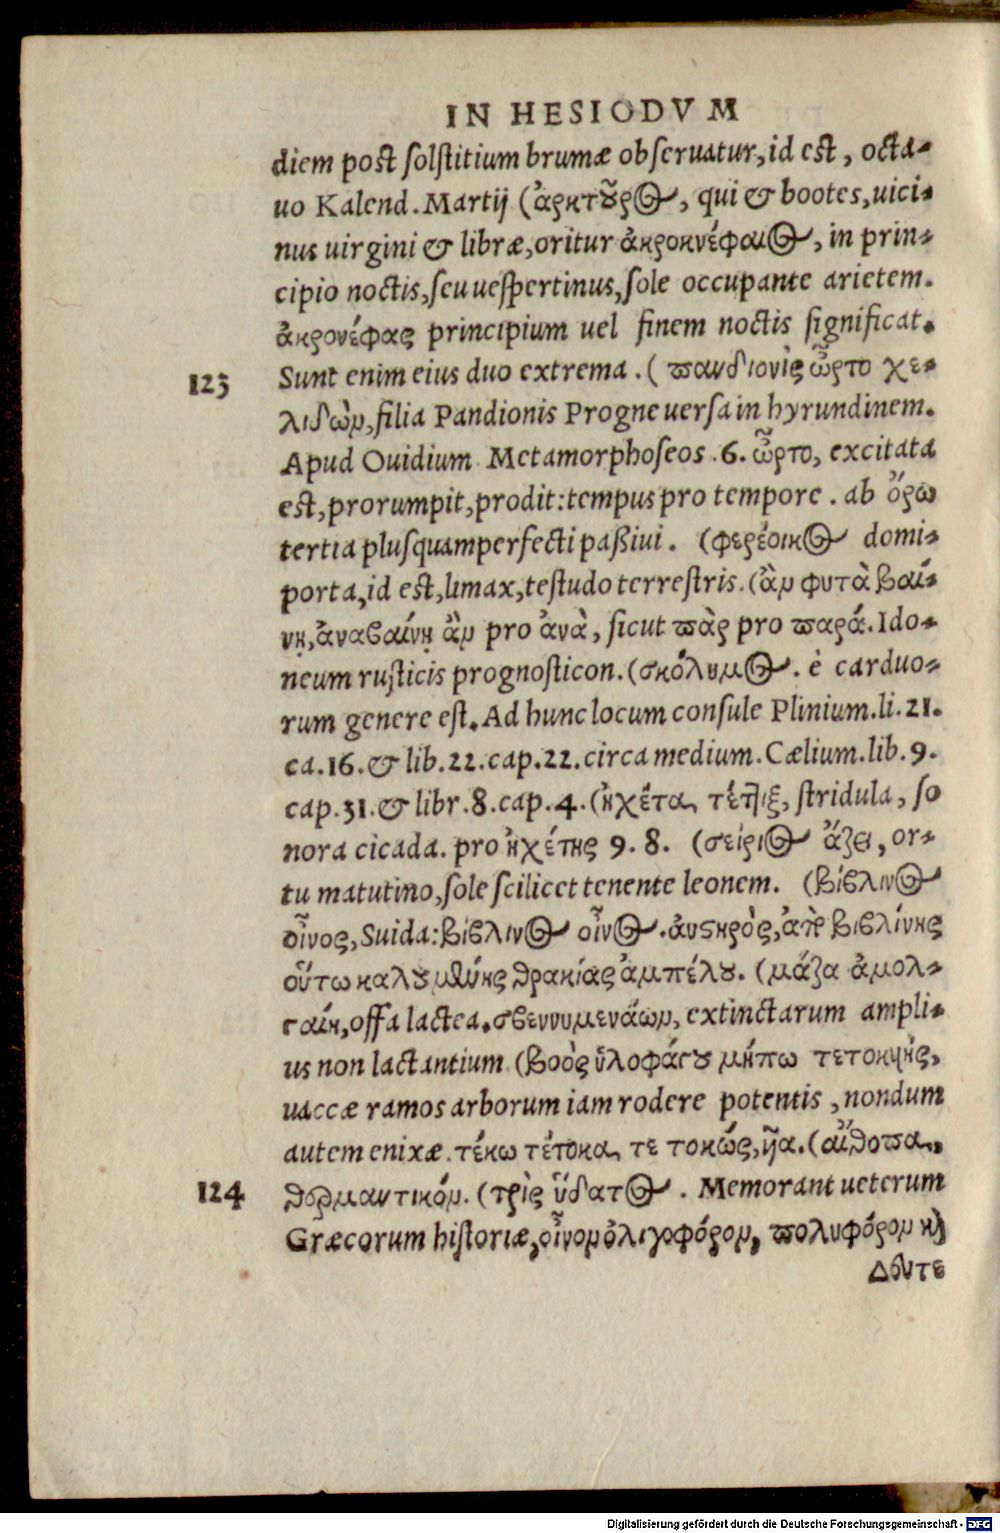 IN HESIODVM
diem post solstitium brumæ obseruatur, id est, octa-
uo Kalend. Martij (ἀρκτοῦρος, qui & bootes, uici-
nus uirgini & libræ, oritur ἀκροκνέφαιος, in prin-
cipio noctis, seu uespertinus, sole occupante arietem.
ἀκρονέφας principium uel finem noctis significat.
123 Sunt enim eius duo extrema. (πανδιονὶς ὦρτο χε-
λιδὼν, filia Pandionis Progne uersa in hyrundinem.
Apud Ouidium Metamorphoseos .6. ὦρτο, excitata
est, prorumpit, prodit: tempus pro tempore. ab ὄρω
tertia plusquamperfecti paßiui. (φερέοικος domi-
porta, id est, limax, testudo terrestris. (ἂν φυτὰ βαί-
νῃ, ἀναβαίνῃ ἂν pro ἀνὰ, sicut πὰρ pro παρά. Ido-
neum rusticis prognosticon. (σκόλυμος. è carduo-
rum genere est. Ad hunc locum consule Plinium. li. 21.
ca. 16. & lib. 22. cap. 22. circa medium. Cælium. lib. 9.
cap. 31. & libr. 8. cap. 4. (ἠχέτα τέτλιξ, stridula, so
nora cicada. pro ἠχέτης 9. 8. (σείριος ἄζει, or-
tu matutino, sole scilicet tenente leonem. (βίβλινος
οἶνος, Suida: βίβλινος οἶνος. αὐστηρὸς, ἀπὸ βιβλίνης
οὕτω καλουμένης θρακίας ἀμπέλου. (μάζα ἀμολ-
γαίη, offa lactea. σβεννυμενάων, extinctarum ampli-
us non lactantium (βοὸς ὑλοφάγου μήπω τετοκυίης,
uaccæ ramos arborum iam rodere potentis, nondum
autem enixæ. τέκω τέτοκα τε τοκώς, υῖα. (αἴθοπα,
124 θερμαντικόν. (τρὶς ὕδατος. Memorant ueterum
Græcorum historiæ, οἶνον ὀλιγοφόρον, πολυφόρον καὶ
Δούτε
Digitalisierung gefördert durch die Deutsche Forschungsgemeinschaft - DFG